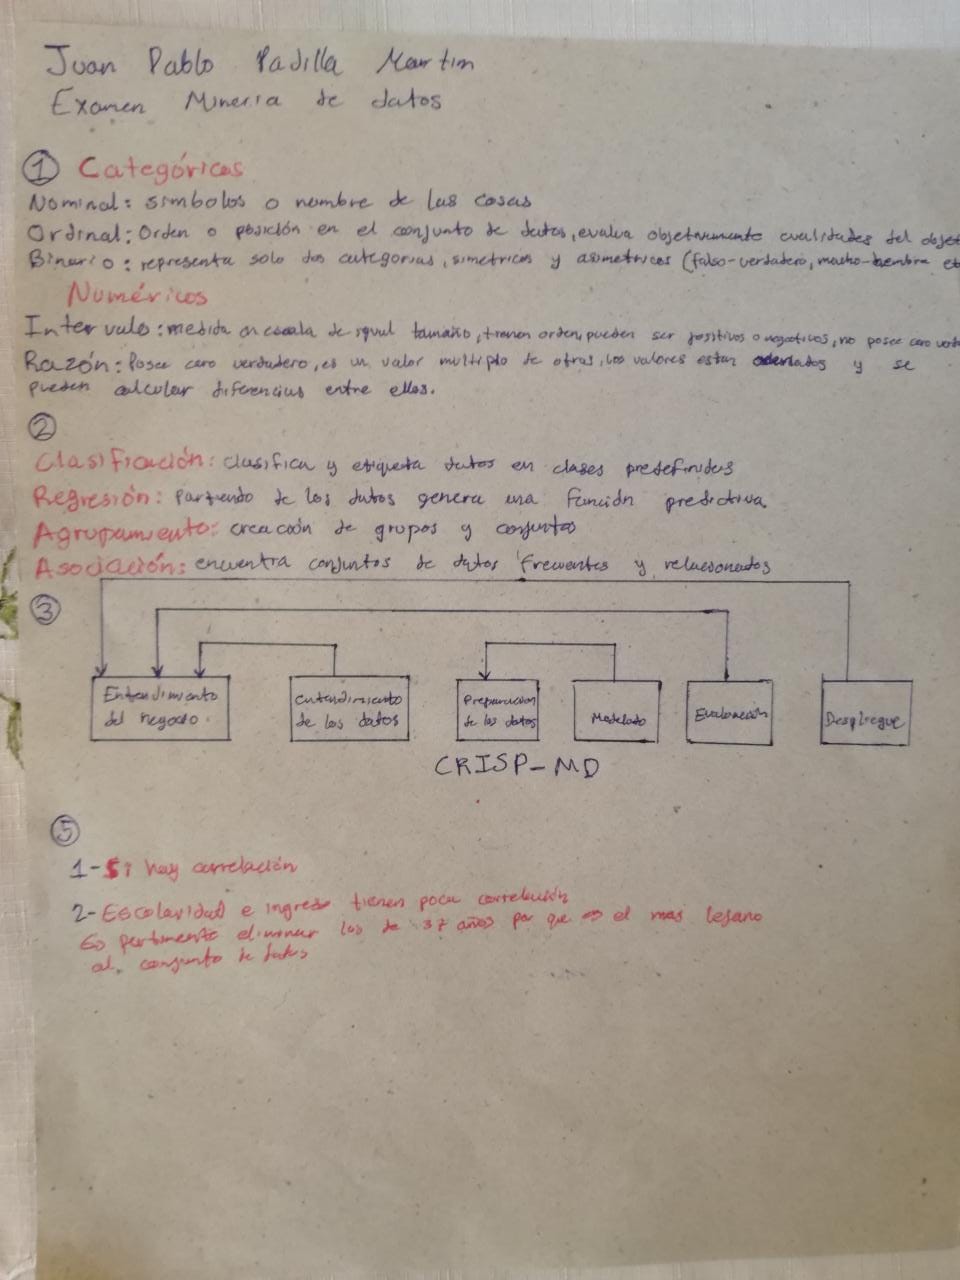 Juan Pablo Padilla Martin
Examen Mineria de datos
① Categóricos
Nominal: simbolos o nombre de las cosas
Ordinal: Orden o posición en el conjunto de datos, evalua objetivamente cualidades del objet
Binario: representa solo dos categorias, simetricos y asimetricos (falso-verdadero, macho-hembra et
Numéricos
Intervalo: medida en escala de igual tamaño, tienen orden, pueden ser positivos o negativos, no posee cero verd
Razón: Posee cero verdadero, es un valor multiplo de otros, los valores estan ordenados y se
pueden calcular diferencias entre ellos.
②
Clasificación: clasifica y etiqueta datos en clases predefinidas
Regresión: Partiendo de los datos genera una función predictiva
Agrupamiento: creación de grupos y conjuntos
Asociación: encuentra conjuntos de datos frecuentes y relacionados
③
Entendimiento del negocio.
entendimiento de los datos
Preparacion de los datos
Modelado
Evaluación
Despliegue
CRISP-MD
⑤
1-Si hay correlación
2-Escolaridad e ingreso tienen poca correlación
Es pertinente eliminar los de 37 años por que es el mas lejano
al conjunto de datos